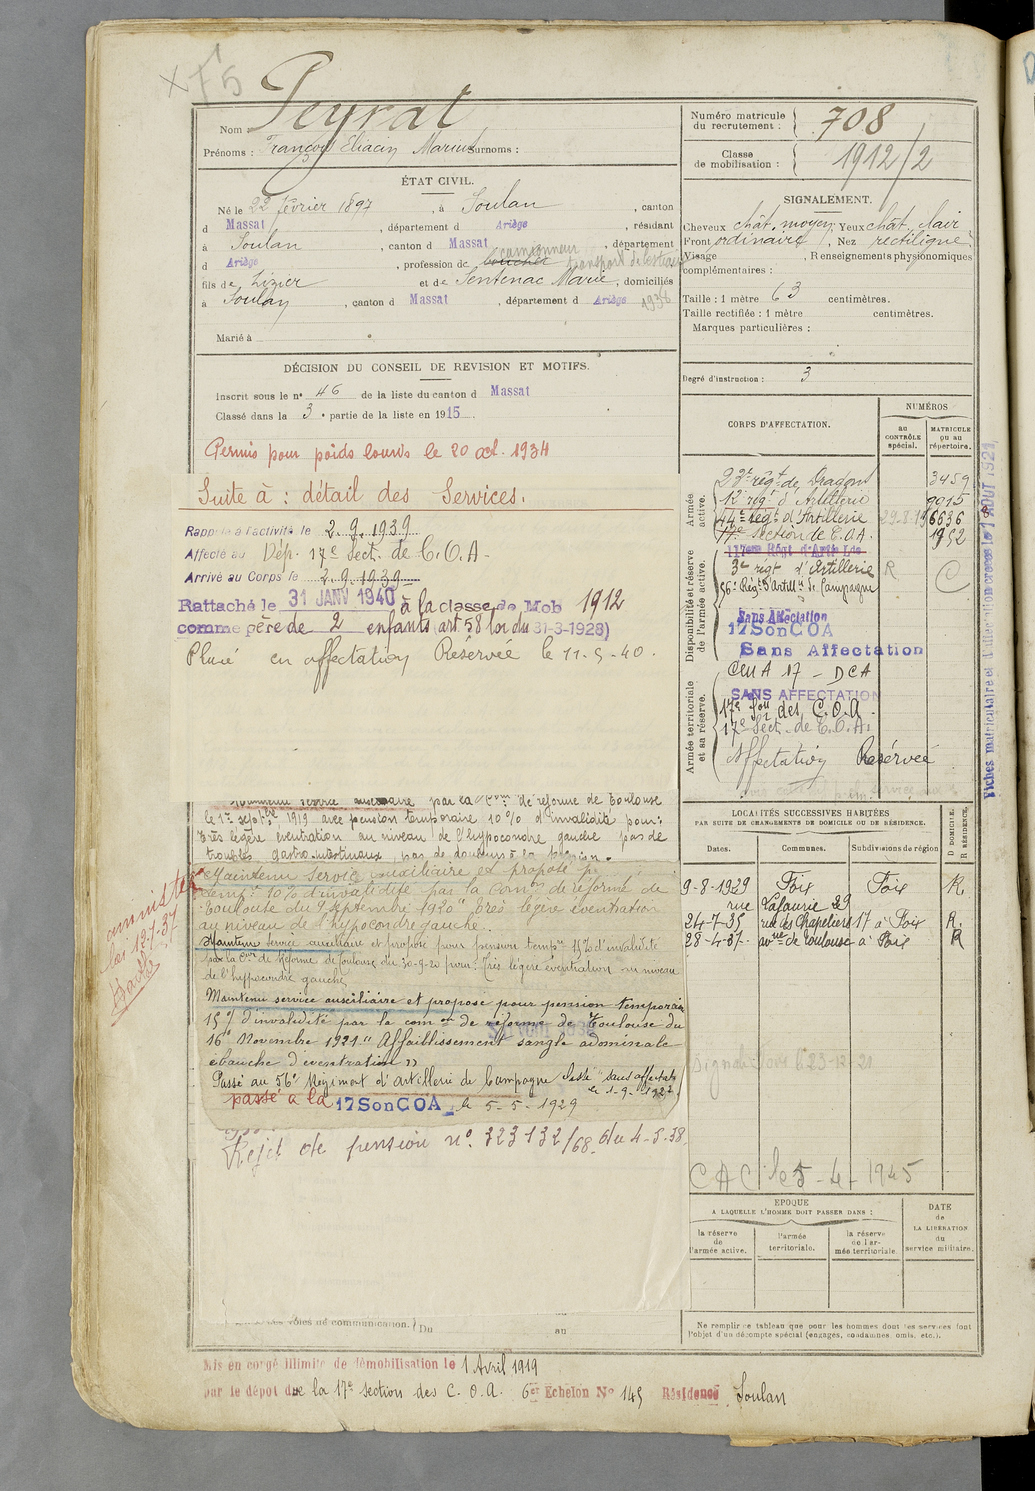 Nom : Peyrat
Prénoms : François Eliacin Marius Surnoms :
ÉTAT CIVIL.
Né le 22 février 1897, à Soulan, canton
d Massat, département d Ariège, résidant
à Soulan, canton d Massat, département
camionneur
d Ariège, profession de boucher transport de bestiaux
fils de Lizier et de Sentenac Marie, domiciliés
à Soulan, canton d Massat, département d Ariège 1936
Marié à
DÉCISION DU CONSEIL DE REVISION ET MOTIFS.
Inscrit sous le n° 46 de la liste du canton d Massat
Classé dans la 3e partie de la liste en 1915
Permis pour poids lourds le 20 oct. 1934
Suite à : détail des Services.
Rappelé à l'activité le 2.9.1939
Affecté au Dép. 17e Sect. de C.O.A -
Arrivé au Corps le 2.9.1939
Rattaché le 31 JANV 1940 à la classe de Mob 1912
comme père de 2 enfants (art 58 loi du 31-3-1928)
Placé en affectation Réservée le 11-5-40.
Maintenu service auxiliaire par la Com. de réforme de Toulouse
le 1er septbre 1919 avec pension temporaire 10% d'invalidité pour:
très légère éventration au niveau de l'hypocondre gauche pas de
troubles gastro-intestinaux, pas de
Maintenu Service auxiliaire et proposé p.
temp. 10% d'invalidité par la Comon de réforme de
Toulouse du septembre 1920 " très légère éventration
au niveau de l'hypocondre gauche.
Maintenu service auxiliaire et proposé pour pension tempre 15% d'invalidité
par la Con de Réforme de Toulouse du 30-9-20 pour: Très légère éventration au niveau
de l'hypocondre gauche
Maintenu service auxiliaire et proposé pour pension temporaire
15% d'invalidité par la comon de réforme de Toulouse du
16 Novembre 1921 " Affaiblissement sangle abdominale
ébauche d'éventration "
Passé au 56e Régiment d'artillerie de Campagne sans affectat.
le 1-9-1922
passé à la 17SonCOA le 5-5-1929
Rejet de pension n°. 723132/68. du 4-5-38.
voies de communication. Du au
Mis en congé illimité de démobilisation le 1 Avril 1919
par le dépôt de la 17e section des C. O. A. 6e Echelon N° 145 Résidence Soulan
amnistie
loi 12-7-37
Numéro matricule du recrutement : 708
Classe de mobilisation : 1912/2
SIGNALEMENT.
Cheveux chât. moyen, Yeux chât. clair
Front ordinaire, Nez rectiligne
Visage , Renseignements physionomiques
complémentaires :
Taille : 1 mètre 63 centimètres.
Taille rectifiée : 1 mètre centimètres.
Marques particulières :
Degré d'instruction : 3
CORPS D'AFFECTATION.
NUMÉROS
au CONTRÔLE spécial.
MATRICULE ou au répertoire.
Armée active.
régt de Dragons 3459
12e régt d'Artillerie 9015
44e Régt d'Artillerie 6636
17e section de C.O.A. 1952
Disponibilité et réserve de l'armée active.
117eme Régt d'Artie Lde
3e régt d'Artillerie R
56e Régt d'Artillie de Campagne
Sans Affectation
17SonCOA
Sans Affectation
Armée territoriale et sa réserve.
17 - DCA
SANS AFFECTATION
17e Son des C.O.A.
17e Sect. de C.O.A.
Affectation Réservée
LOCALITÉS SUCCESSIVES HABITÉES
PAR SUITE DE CHANGEMENTS DE DOMICILE OU DE RÉSIDENCE.
Dates. Communes. Subdivisions de région D DOMICILE. R RÉSIDENCE.
9-8-1929 Foix Foix R.
rue Lafaurie 29
24-7-35 rue des Chapeliers 17 à Foix R.
28-4-37. avnue de Toulouse à Foix R
CAC le 5-4-1945
EPOQUE
A LAQUELLE L'HOMME DOIT PASSER DANS :
la réserve de l'armée active.
l'armée territoriale.
la réserve de l'armée territoriale
DATE de LA LIBÉRATION du service militaire.
Ne remplir ce tableau que pour les hommes dont les services font
l'objet d'un décompte spécial (engagés, condamnés, omis, etc.).